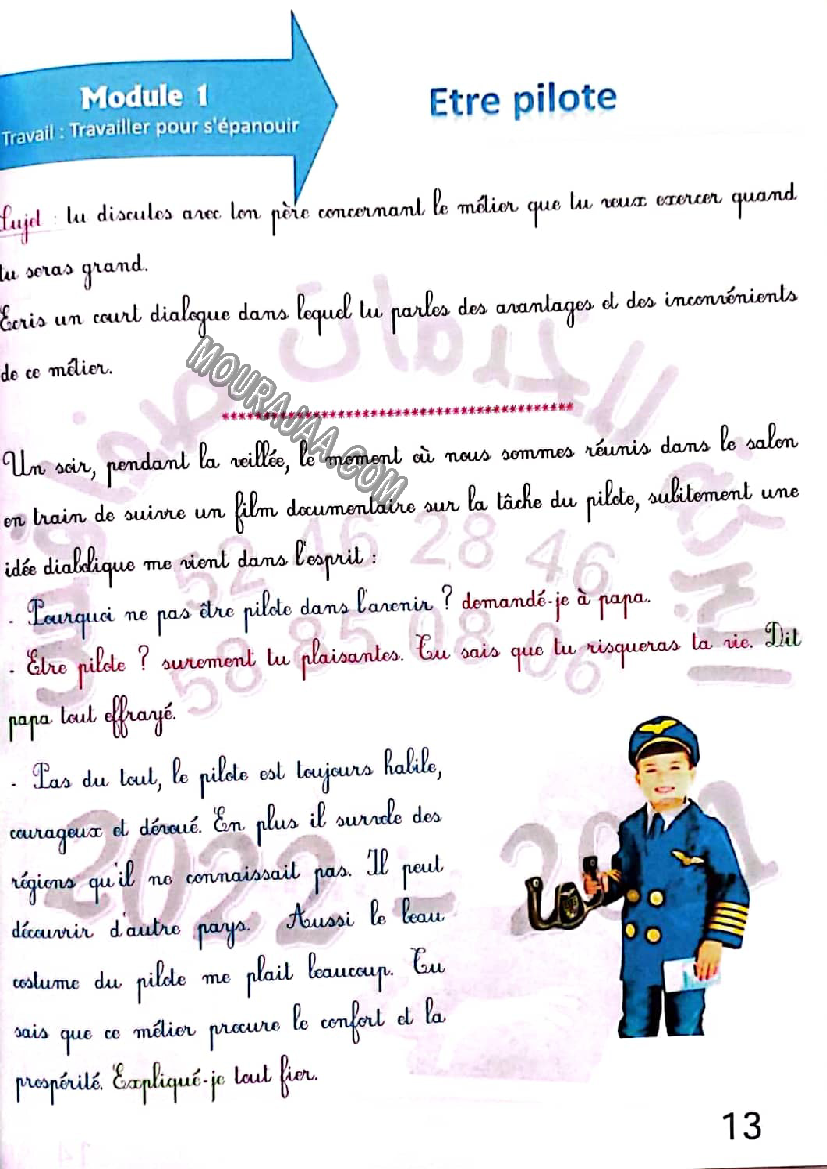 Module 1
Travail : Travailler pour s'épanouir
Etre pilote
Sujet : tu discutes avec ton père concernant le métier que tu veux exercer quand
tu seras grand.
Ecris un court dialogue dans lequel tu parles des avantages et des inconvénients
de ce métier.
MOURAJAA.COM
******************************************
Un soir, pendant la veillée, le moment où nous sommes réunis dans le salon
en train de suivre un film documentaire sur la tâche du pilote, subitement une
idée diabolique me vient dans l'esprit :
52 46 28 46
- Pourquoi ne pas être pilote dans l'avenir ? demandé-je à papa.
- Etre pilote ? surement tu plaisantes. Tu sais que tu risqueras ta vie. Dit
58 85 08 06
papa tout effrayé.
- Pas du tout, le pilote est toujours habile,
courageux et dévoué. En plus il survole des
régions qu'il ne connaissait pas. Il peut
découvrir d'autre pays. Aussi le beau
costume du pilote me plait beaucoup. Tu
sais que ce métier procure le confort et la
prospérité. Expliqué-je tout fier.
13